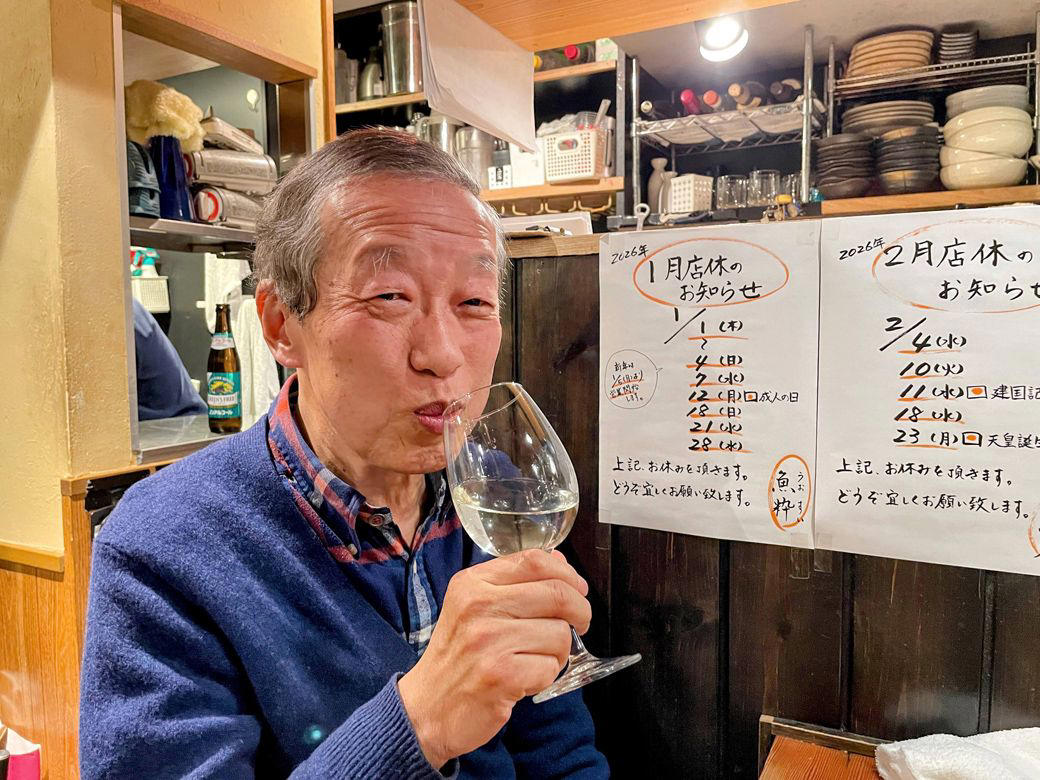 2026年
1月店休の
お知らせ
1/1(木)
〜
4(日)
7(水)
12(月)成人の日
18(日)
21(水)
28(水)
新年は
1/5(月)より
営業開始
します。
上記、お休みを頂きます。
どうぞ宜しくお願い致します。
うおすい
魚粋
2026年
2月店休の
お知らせ
2/4(水)
10(火)
11(水)建国記
18(水)
23(月)天皇誕生
上記、お休みを頂きます。
どうぞ宜しくお願い致します。
ノンアルコール